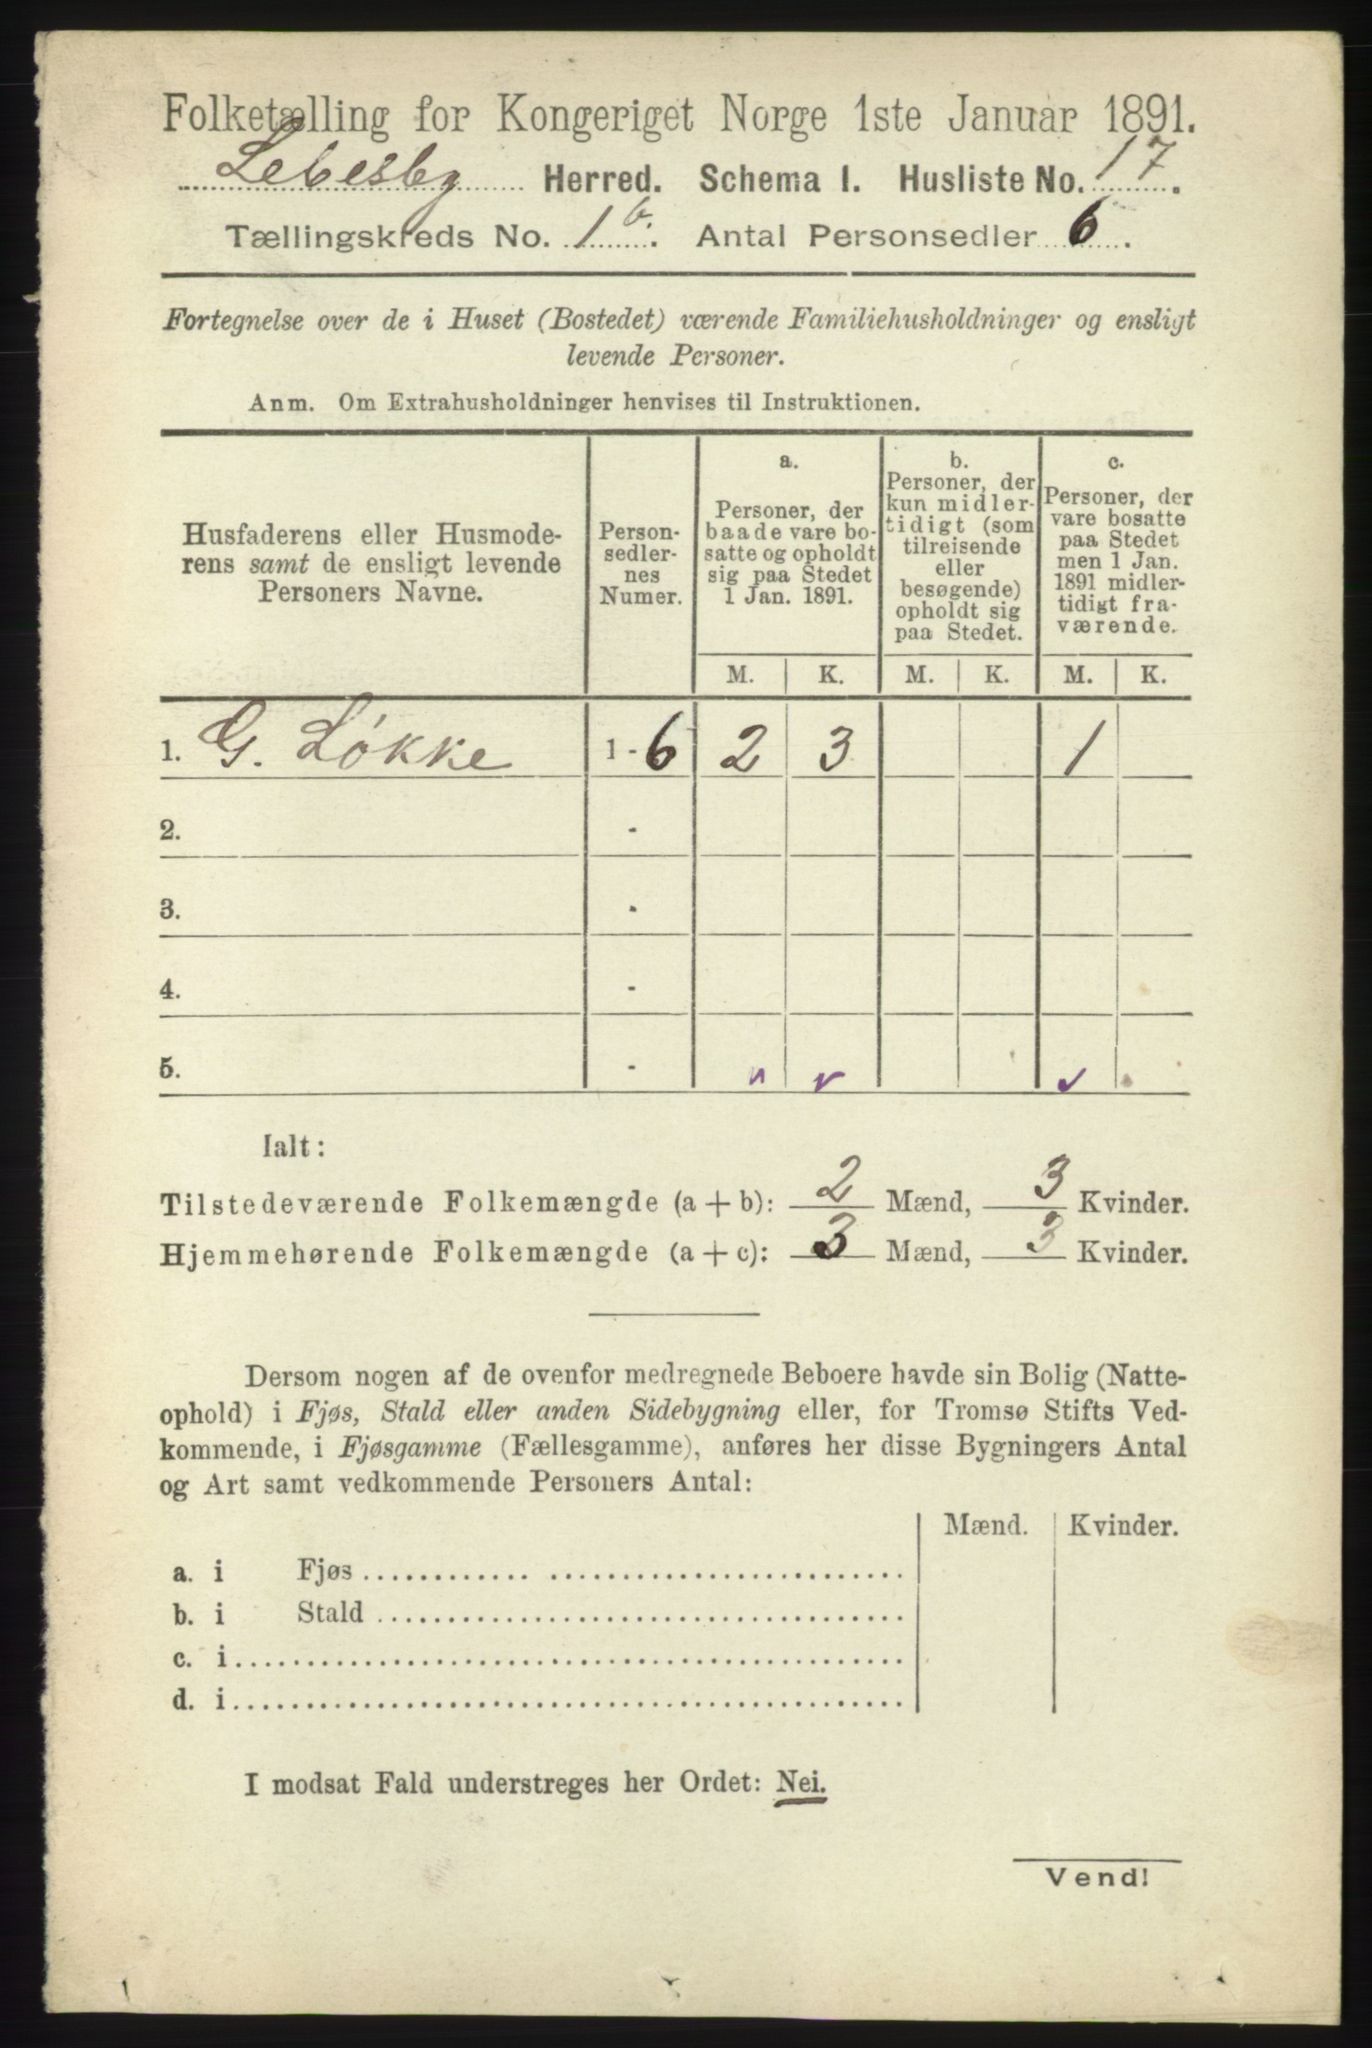 Folketælling for Kongeriget Norge 1ste Januar 1891.
Lebesby Herred. Schema I. Husliste No. 17.
Tællingskreds No. 1 b. Antal Personsedler 6.
Fortegnelse over de i Huset (Bostedet) værende Familiehusholdninger og ensligt
levende Personer.
Anm. Om Extrahusholdninger henvises til Instruktionen.
Husfaderens eller Husmode-
rens samt de ensligt levende
Personers Navne.
Person-
sedler-
nes
Numer.
a.
Personer, der
baade vare bo-
satte og opholdt
sig paa Stedet
1 Jan. 1891.
b.
Personer, der
kun midler-
tidigt (som
tilreisende
eller
besøgende)
opholdt sig
paa Stedet.
c.
Personer, der
vare bosatte
paa Stedet
men 1 Jan.
1891 midler-
tidigt fra-
værende.
M. K. M. K. M. K.
1. G. Løkke 1 - 6 2 3 1
2. -
3. -
4. -
5. -
Ialt:
Tilstedeværende Folkemængde (a + b): 2 Mænd, 3 Kvinder.
Hjemmehørende Folkemængde (a + c): 3 Mænd, 3 Kvinder.
Dersom nogen af de ovenfor medregnede Beboere havde sin Bolig (Natte-
ophold) i Fjøs, Stald eller anden Sidebygning eller, for Tromsø Stifts Ved-
kommende, i Fjøsgamme (Fællesgamme), anføres her disse Bygningers Antal
og Art samt vedkommende Personers Antal:
Mænd. Kvinder.
a. i Fjøs
b. i Stald
c. i
d. i
I modsat Fald understreges her Ordet: Nei.
Vend!